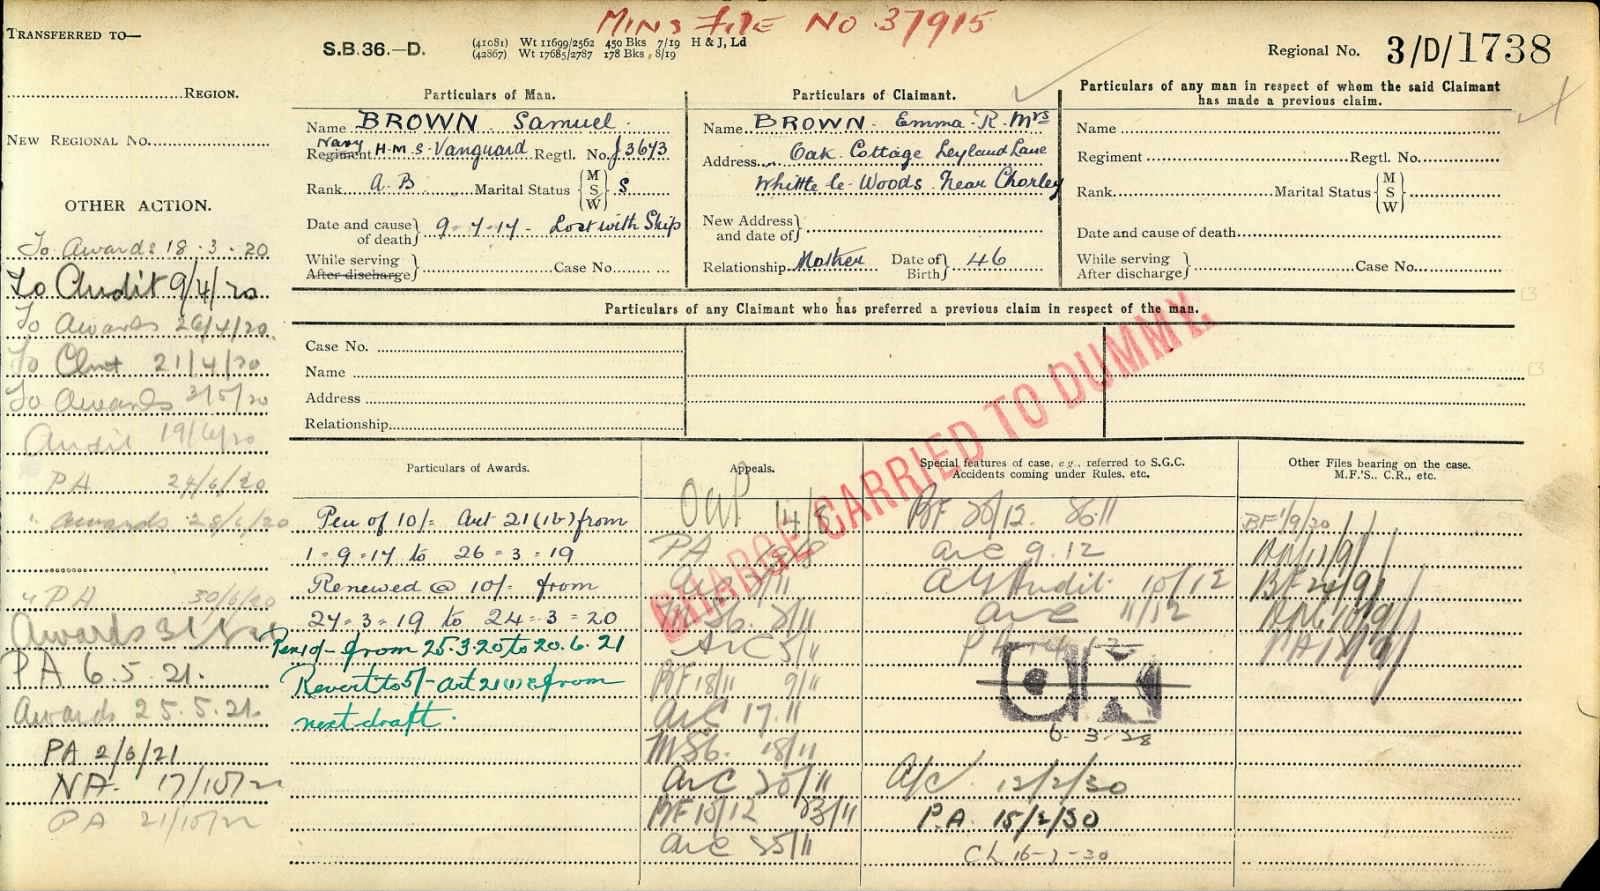 MINS FILE NO 37915
TRANSFERRED TO—
S.B.36.—D.
(41081) Wt 11699/2562 450 Bks 7/19 H & J, Ld
(42867) Wt 17685/2787 178 Bks 8/19
Regional No. 3/D/1738
REGION.
NEW REGIONAL No.
OTHER ACTION.
To Awards 18.3.20
To Audit 9/4/20
To Awards 26/4/20
To 21/4/20
To Awards 3/5/20
Audit 19/6/20
PA 24/6/20
" Awards 28/6/20
" PA 30/6/20
Awards
PA 6.5.21.
Awards 25.5.21.
PA 2/6/21
NA. 17/10/
PA 21/10/
Particulars of Man.
Name BROWN Samuel.
Navy
Regiment H.M.S. Vanguard Regtl. No. J3673
Rank A.B. Marital Status { M S W } S
Date and cause of death } 9-7-17 - Lost with Ship
While serving
After discharge } Case No.
Particulars of Claimant.
Name BROWN. Emma. R. Mrs
Address Oak Cottage Leyland Lane
Whittle-le-Woods. Near Chorley
New Address and date of }
Relationship Mother Date of Birth } 46
Particulars of any man in respect of whom the said Claimant
has made a previous claim.
Name
Regiment Regtl. No.
Rank Marital Status { M S W }
Date and cause of death
While serving
After discharge } Case No.
Particulars of any Claimant who has preferred a previous claim in respect of the man.
Case No.
Name
Address
Relationship
CHARGE CARRIED TO DUMMY.
Particulars of Awards.
Pen of 10/= Art 21(1b) from
1=9=17 to 26=3=19
Renewed @ 10/- from
27=3=19 to 24=3=20
Pen 10/- from 25.3.20 to 20.6.21
Revert to 5/- Art 21(1) from
next draft.
Appeals.
OUP 14/8
PA
M86.
A/C 5/11
BF 18/11 9/11
A/C 17.11
M86. 18/11
A/C 20/11
BF 10/12 23/11
A/C 25/11
Special features of case, e.g., referred to S.G.C.
Accidents coming under Rules, etc.
BF 20/12. 26.11
A/C 9.12
Audit. 10/12
A/C 11/12
6. 3. 28
A/C 12/2/30
P.A. 15/2/30
Other Files bearing on the case.
M.F.'S., C.R., etc.
BF 1/9/20
BF 24/9